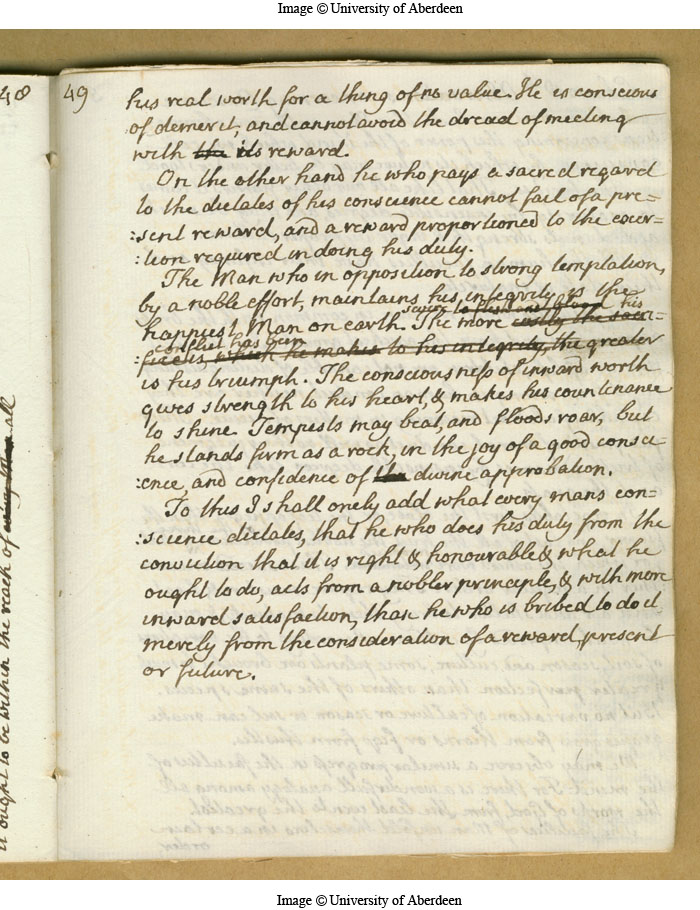 Image © University of Aberdeen
48
49
his real worth for a thing of no value. He is conscious
of demerit, and cannot avoid the dread of meeting
with the its reward.
On the other hand he who pays a sacred regard
to the dictates of his conscience cannot fail of a pre=
:sent reward, and a reward proportioned to the exer=
:tion required in doing his duty.
The Man who in opposition to strong temptation,
by a noble effort, maintains his integrity is the
severe to flesh and blood his
happiest Man on earth. The more costly the sacri=
conflict has been
:fice is, which he makes to his integrity, the greater
is his triumph. The consciousness of inward worth
gives strength to his heart, & makes his countenance
to shine. Tempests may beat, and floods roar, but
he stands firm as a rock, in the joy of a good consci=
:ence, and confidence of the divine approbation.
To this I shall onely add what every mans con=
:science dictates, that he who does his duty from the
conviction that it is right & honourable & what he
ought to do, acts from a nobler principle, & with more
inward satisfaction, than he who is bribed to do it
merely from the consideration of a reward, present
or future.
ought to be within the reach of all
Image © University of Aberdeen